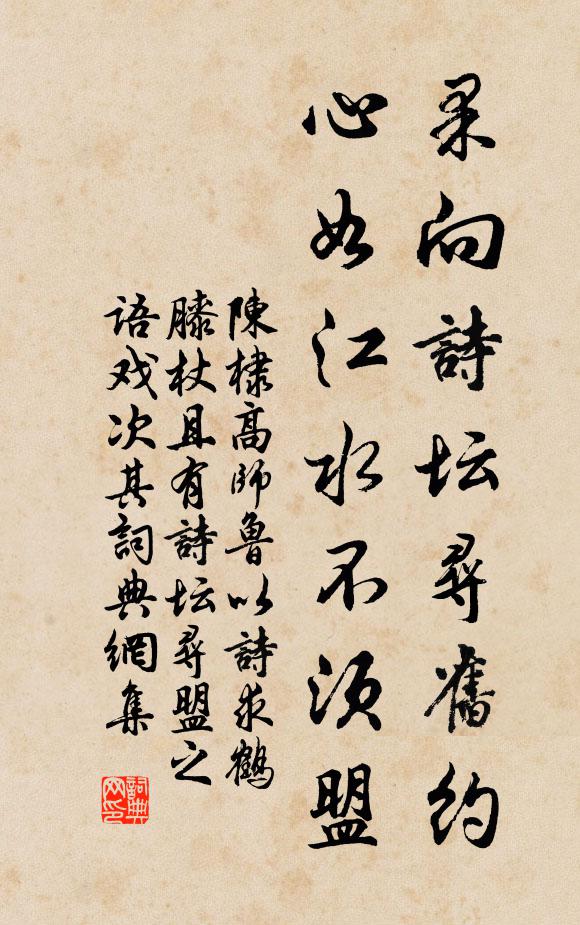 果向詩坛尋舊约
心如江水不须盟
陳棣高師魯以詩求鶴
膝杖且有詩坛尋盟之
语戏次其詞典網集
詞典
网印